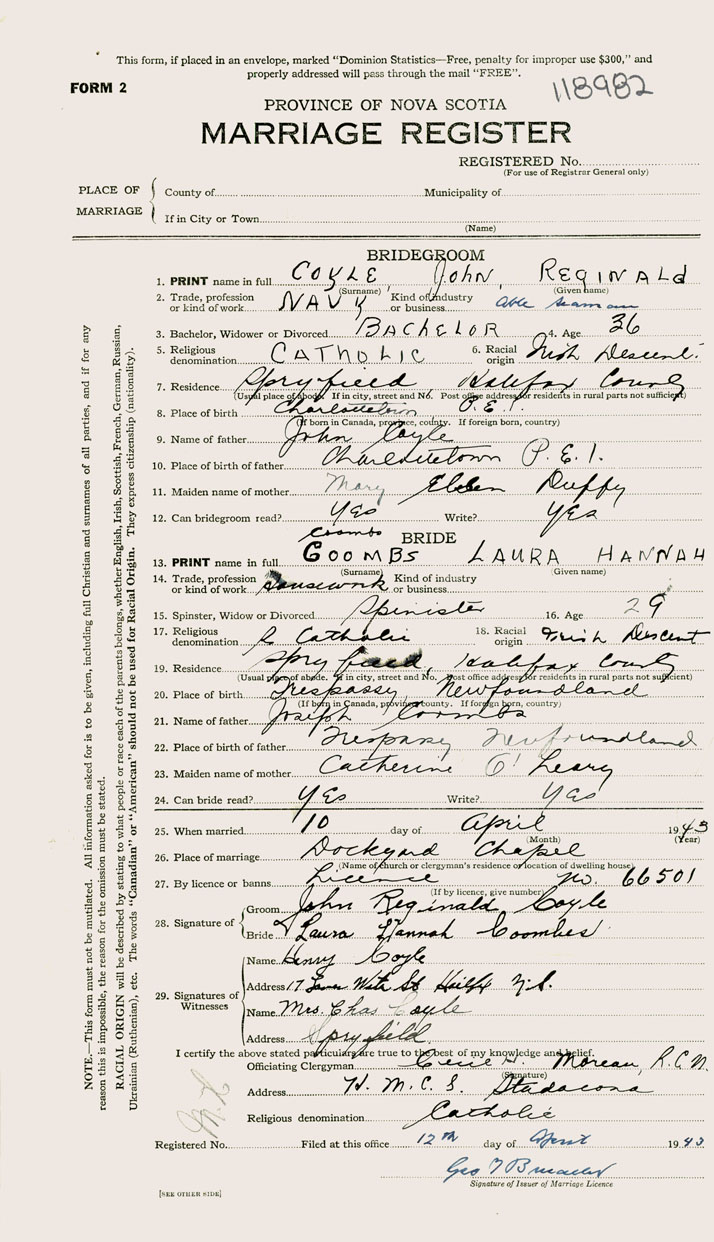 This form, if placed in an envelope, marked "Dominion Statistics—Free, penalty for improper use $300," and
properly addressed will pass through the mail "FREE".
FORM 2
118982
PROVINCE OF NOVA SCOTIA
MARRIAGE REGISTER
REGISTERED No.
(For use of Registrar General only)
PLACE OF MARRIAGE
County of Municipality of
If in City or Town
(Name)
BRIDEGROOM
1. PRINT name in full COYLE John, REGINALd
(Surname) (Given name)
2. Trade, profession or kind of work NAVY Kind of industry or business Able Seaman
3. Bachelor, Widower or Divorced BACHELOR 4. Age 36
5. Religious denomination CATHOLIC 6. Racial origin Irish Descent.
7. Residence Spryfield Halifax County
(Usual place of abode. If in city, street and No. Post office address for residents in rural parts not sufficient)
8. Place of birth Charlottetown P.E.I.
(If born in Canada, province, county. If foreign born, country)
9. Name of father John Coyle
10. Place of birth of father Charlottetown P.E.I.
11. Maiden name of mother Mary Ellen Duffy
12. Can bridegroom read? Yes Write? Yes
Coombs
BRIDE
13. PRINT name in full COOMBS LAURA HANNAH
(Surname) (Given name)
14. Trade, profession or kind of work Housework Kind of industry or business
15. Spinster, Widow or Divorced Spinister 16. Age 29
17. Religious denomination R Catholic 18. Racial origin Irish Descent
19. Residence Spryfield, Halifax County
(Usual place of abode. If in city, street and No. Post office address for residents in rural parts not sufficient)
20. Place of birth Trespassy Newfoundland
(If born in Canada, province, county. If foreign born, country)
21. Name of father Joseph Coombs
22. Place of birth of father Trespassy Newfoundland
23. Maiden name of mother Catherine O'Leary
24. Can bride read? Yes Write? Yes
25. When married 10 day of April 1943
(Month) (Year)
26. Place of marriage Dockyard Chapel
(Name of church or clergyman's residence or location of dwelling house)
27. By licence or banns License No. 66501
(If by licence, give number)
28. Signature of
Groom John Reginald Coyle
Bride Laura Hannah Coombes
29. Signatures of Witnesses
Name Henry Coyle
Address 17 Water St N.S.
Name Mrs. Chas Coyle
Address Spryfield
I certify the above stated particulars are true to the best of my knowledge and belief.
Officiating Clergyman Moreau, R.C.N.
(Signature)
Address H.M.C.S. Stadacona
Religious denomination Catholic
Registered No. Filed at this office 12th day of April 1943
Geo
Signature of Issuer of Marriage Licence
[SEE OTHER SIDE]
NOTE.—This form must not be mutilated. All information asked for is to be given, including full Christian and surnames of all parties, and if for any
reason this is impossible, the reason for the omission must be stated.
RACIAL ORIGIN will be described by stating to what people or race each of the parents belongs, whether English, Irish, Scottish, French, German, Russian,
Ukrainian (Ruthenian), etc. The words "Canadian" or "American" should not be used for Racial Origin. They express citizenship (nationality).